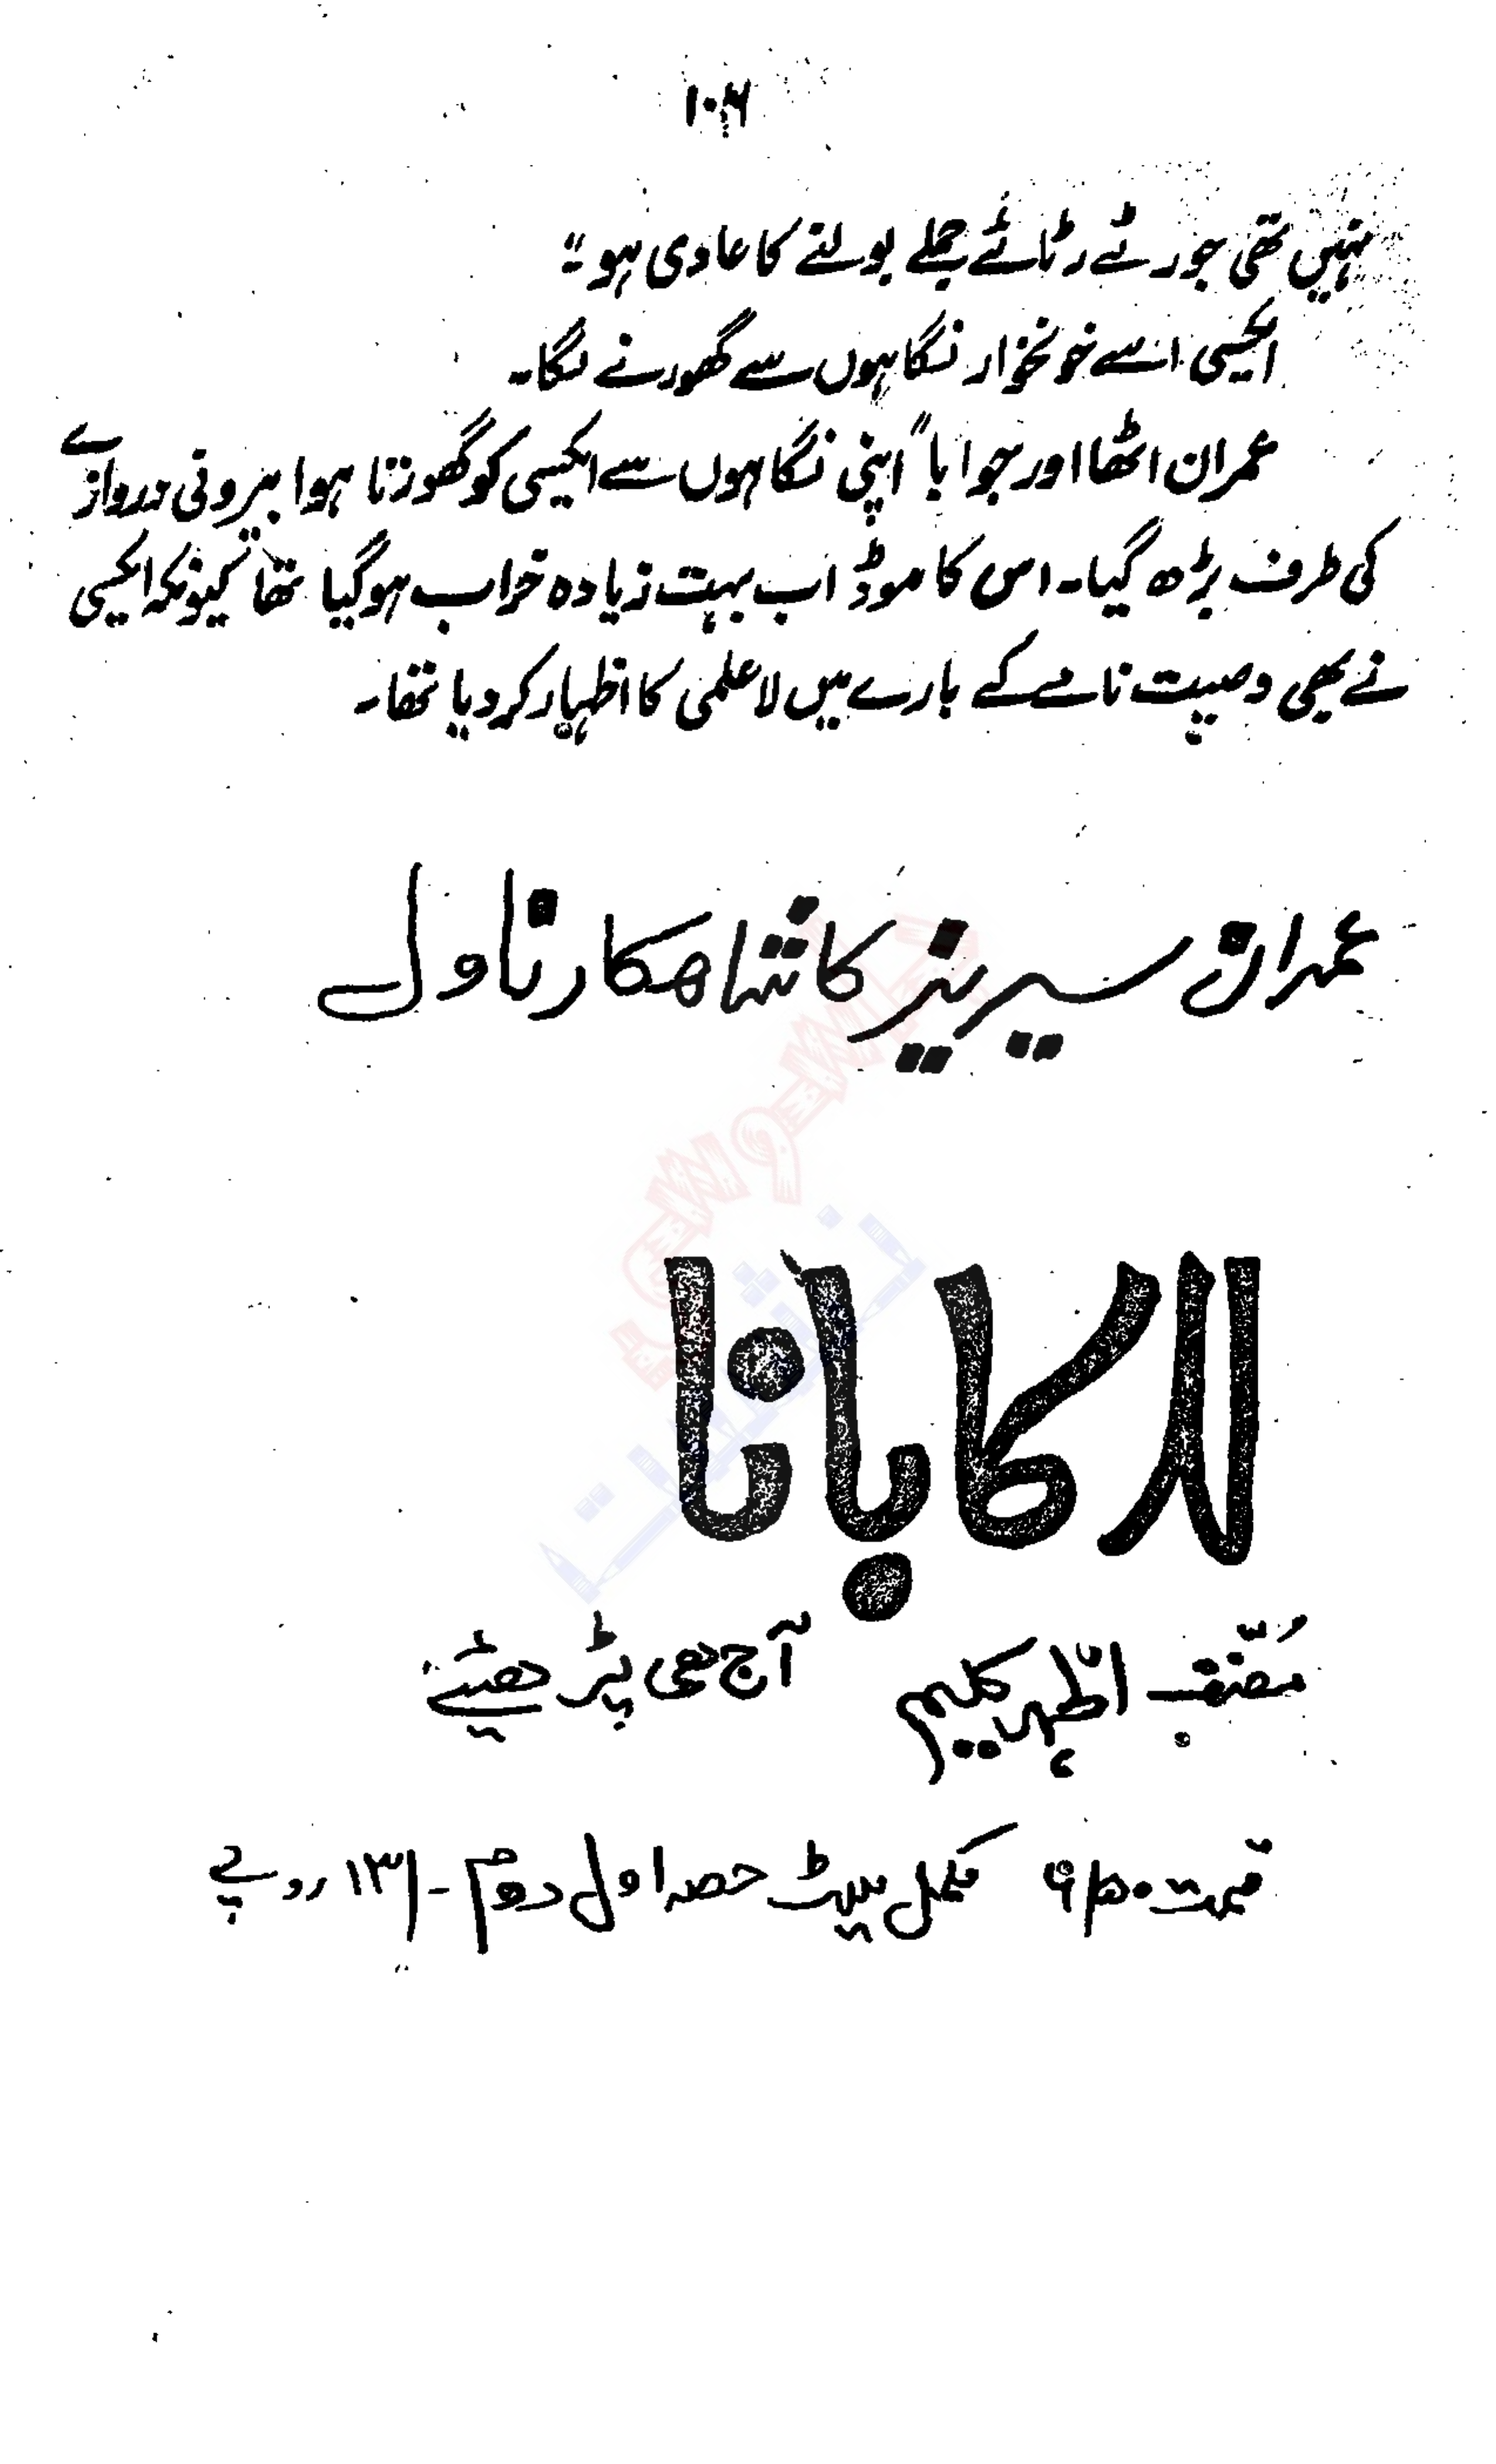 ۱۰۶
نہیں تھی جو رٹے رٹائے جملے بولنے کا عادی ہو"
ایکسی اسے خونخوار نگاہوں سے گھورنے لگا۔
عمران اٹھا اور جوابا" اپنی نگاہوں سے ایکسی کو گھورتا ہوا بیرونی دروازے
کی طرف بڑھ گیا۔ اس کا موڈ اب بہت زیادہ خراب ہو گیا تھا کیونکہ ایکسی
نے بھی وصیت نامے کے بارے میں لاعلمی کا اظہار کر دیا تھا۔
عمران سیریز کا شاھکار ناول
کابانا
مُصنّف اظہر کلیم آج ھی پڑھئیے
قیمت ۶/۵۰ مکمل سیٹ حصہ اول دوم -/۱۳ روپے